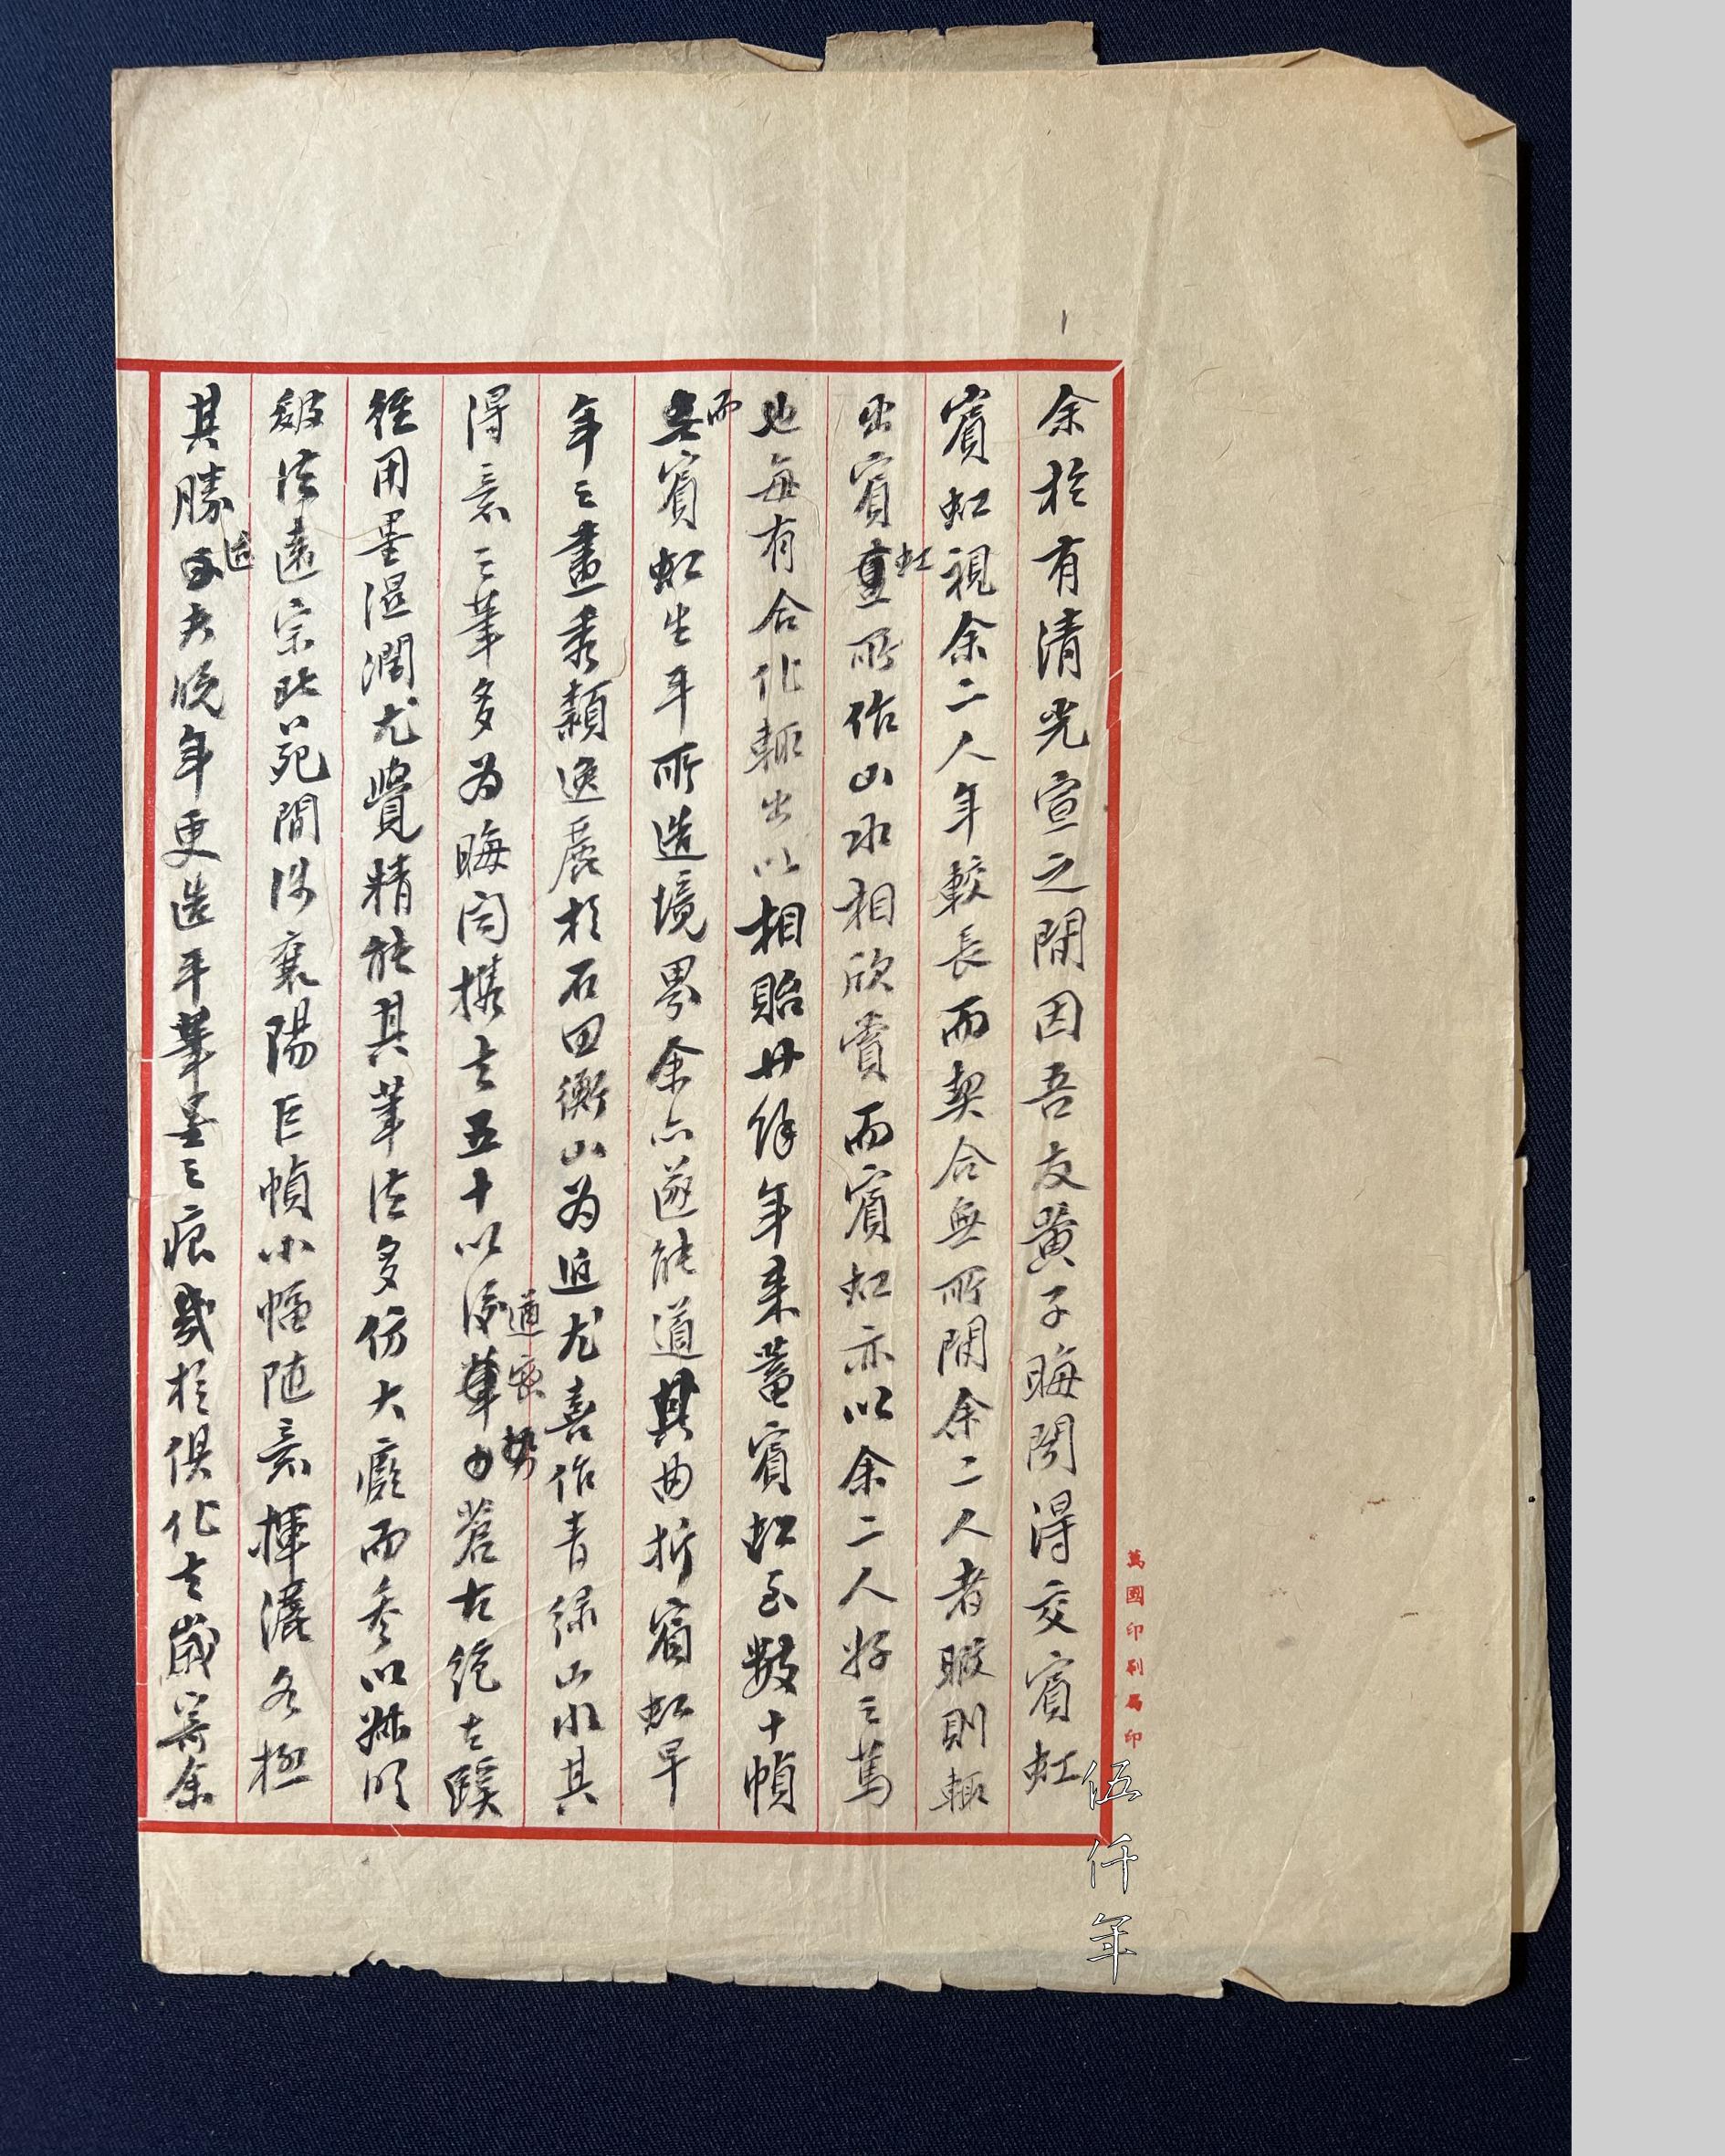 余於有清光宣之間因吾友黃子晦聞得交賓虹
賓虹視余二人年較長而契合無所間余二人者暇則輒
出賓虹所作山水相欣賞而賓虹亦以余二人好之篤
也每有合化輒出以相貽廿餘年來蓄賓虹至數十幀
而賓虹生平所造境界余亦遂能道其曲折賓虹早
年之畫秀穎逸麗於石田衡山為近尤喜作青綠山水其
得意之筆多為晦聞攜去五十以後遒密勢蒼古絕去蹊
徑用墨溼潤尤覺精能其筆法多仿大癡而參以
皴法遠宗北苑間涉襄陽巨幀小幅随意揮灑各極
其勝迨夫晚年更造平筆墨之痕幾於俱化去歲寄余
萬國印刷局印
伍仟年